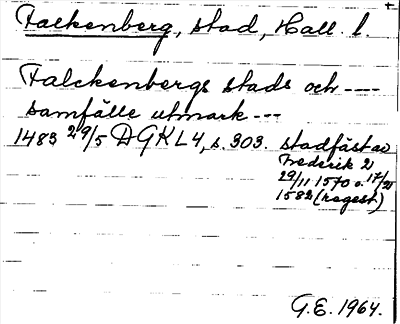 Falkenberg, stad, Hall. l.
Falckenbergs stads och ----
samfälle utmark ---
1483 29/5 DGKL4, s. 303. stadfäst av
Frederik 2
29/11 1570 o. 17/
1582 (regest)
G.E. 1964.